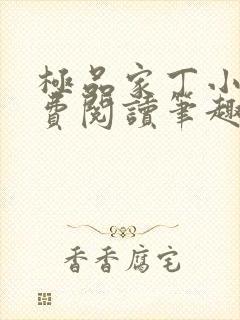 極品家丁小
費閱讀筆趣
香香腐宅